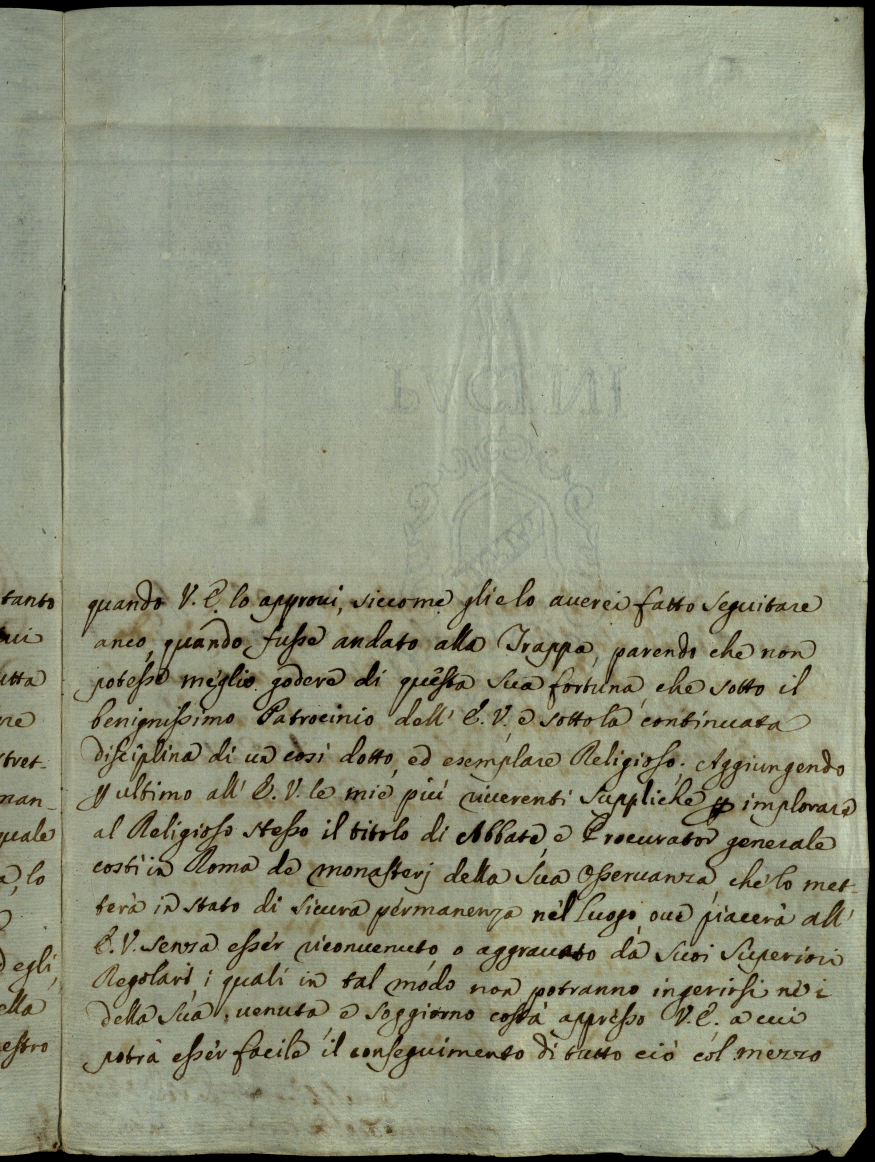 quando V. E. lo approui, siccome glielo auerei fatto seguitare
anco, quando fusse andato alla Trappa, parendo che non
potesse meglio godere di questa sua fortuna, che sotto il
benignissimo Patrocinio dell' E. V. e sotto la continuata
disciplina di un così dotto, ed esemplare Religioso. Aggiungendo
ultimo all' E. V. le mie più riuerenti suppliche implorare
al Religioso stesso il titolo di Abbate, e Procurator generale
costì in Roma de monasterj della sua osseruanza, che lo met-
terà in stato di sicura permanenza nel Luogo oue piacerà all'
E. V. senza esser riconuenuto, o aggrauato da suoi Superiori
Regolari i quali in tal modo non potranno ingerirsi
della sua uenuta e soggiorno costà appresso V. E. a cui
potrà esser facile il conseguimento di tutto ciò col mezzo
tanto
utta
ne
stret-
man-
quale
a, lo
degli
ella
estro